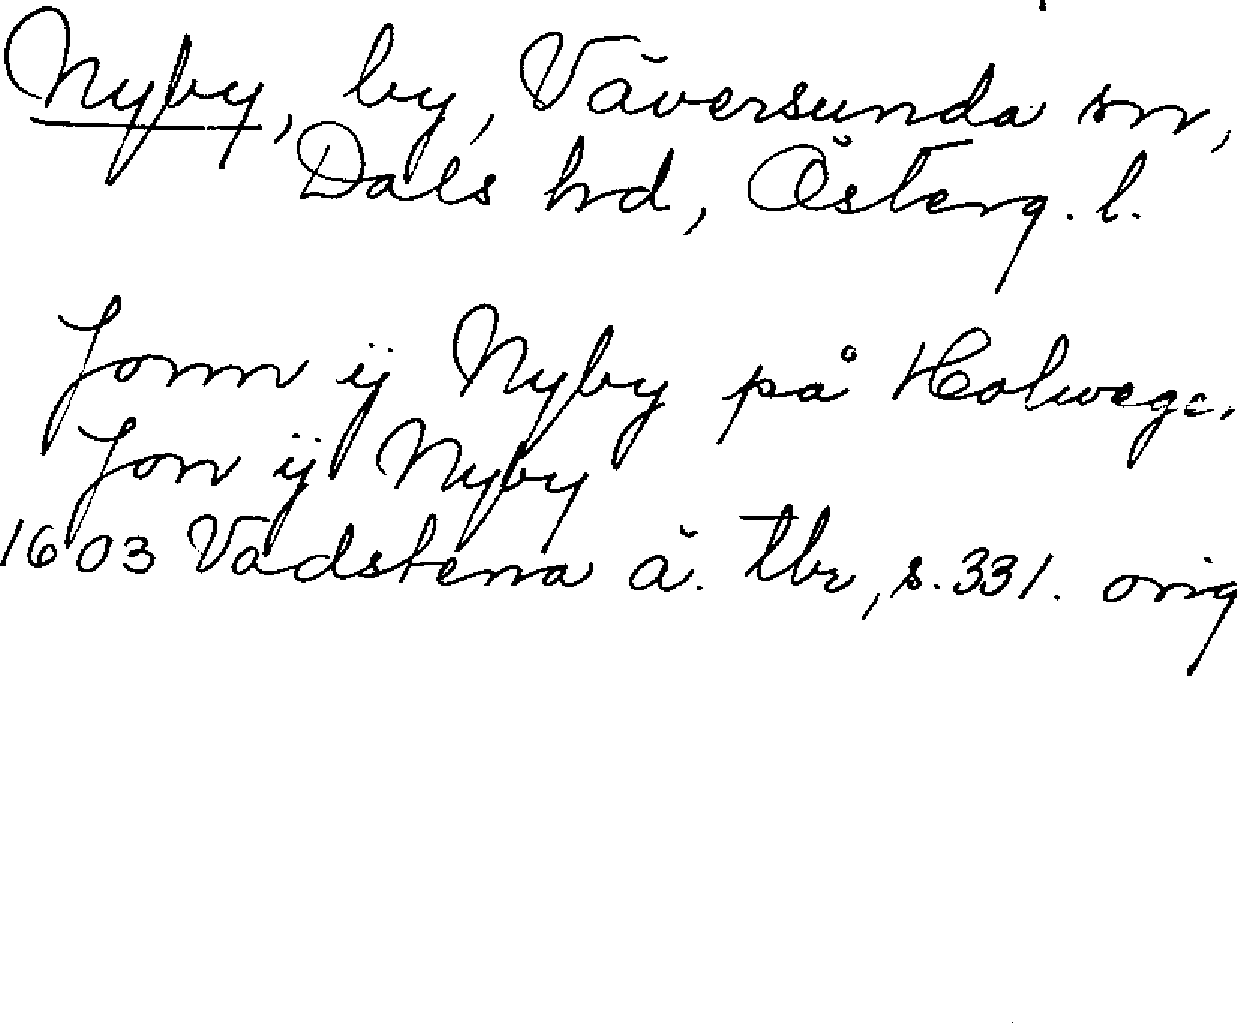 Nyby, by, Väversunda sn,
Dals hd, Österg. l.
Jonn ÿ Nyby på Holwege,
Jon ÿ Nyby
1603 Vadstena ä. tbr, s. 331. orig